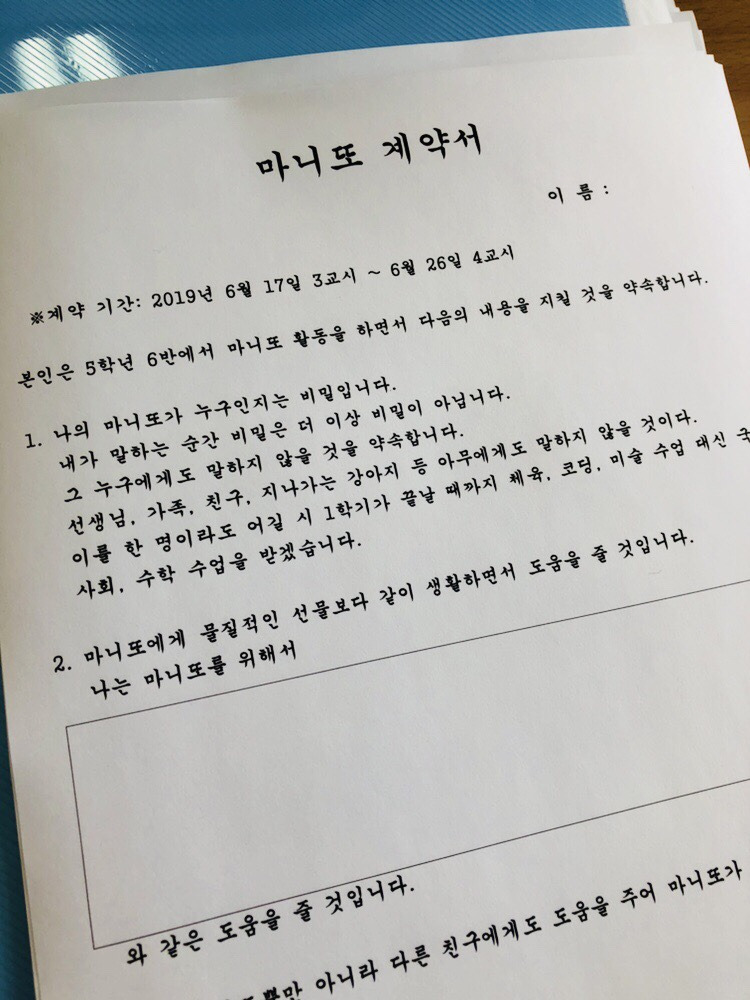 마니또 계약서
이 름 :
※계약 기간: 2019년 6월 17일 3교시 ~ 6월 26일 4교시
본인은 5학년 6반에서 마니또 활동을 하면서 다음의 내용을 지킬 것을 약속합니다.
1. 나의 마니또가 누구인지는 비밀입니다.
내가 말하는 순간 비밀은 더 이상 비밀이 아닙니다.
그 누구에게도 말하지 않을 것을 약속합니다.
선생님, 가족, 친구, 지나가는 강아지 등 아무에게도 말하지 않을 것이다.
이를 한 명이라도 어길 시 1학기가 끝날 때까지 체육, 코딩, 미술 수업 대신
사회, 수학 수업을 받겠습니다.
2. 마니또에게 물질적인 선물보다 같이 생활하면서 도움을 줄 것입니다.
나는 마니또를 위해서
와 같은 도움을 줄 것입니다.
아니라 다른 친구에게도 도움을 주어 마니또가